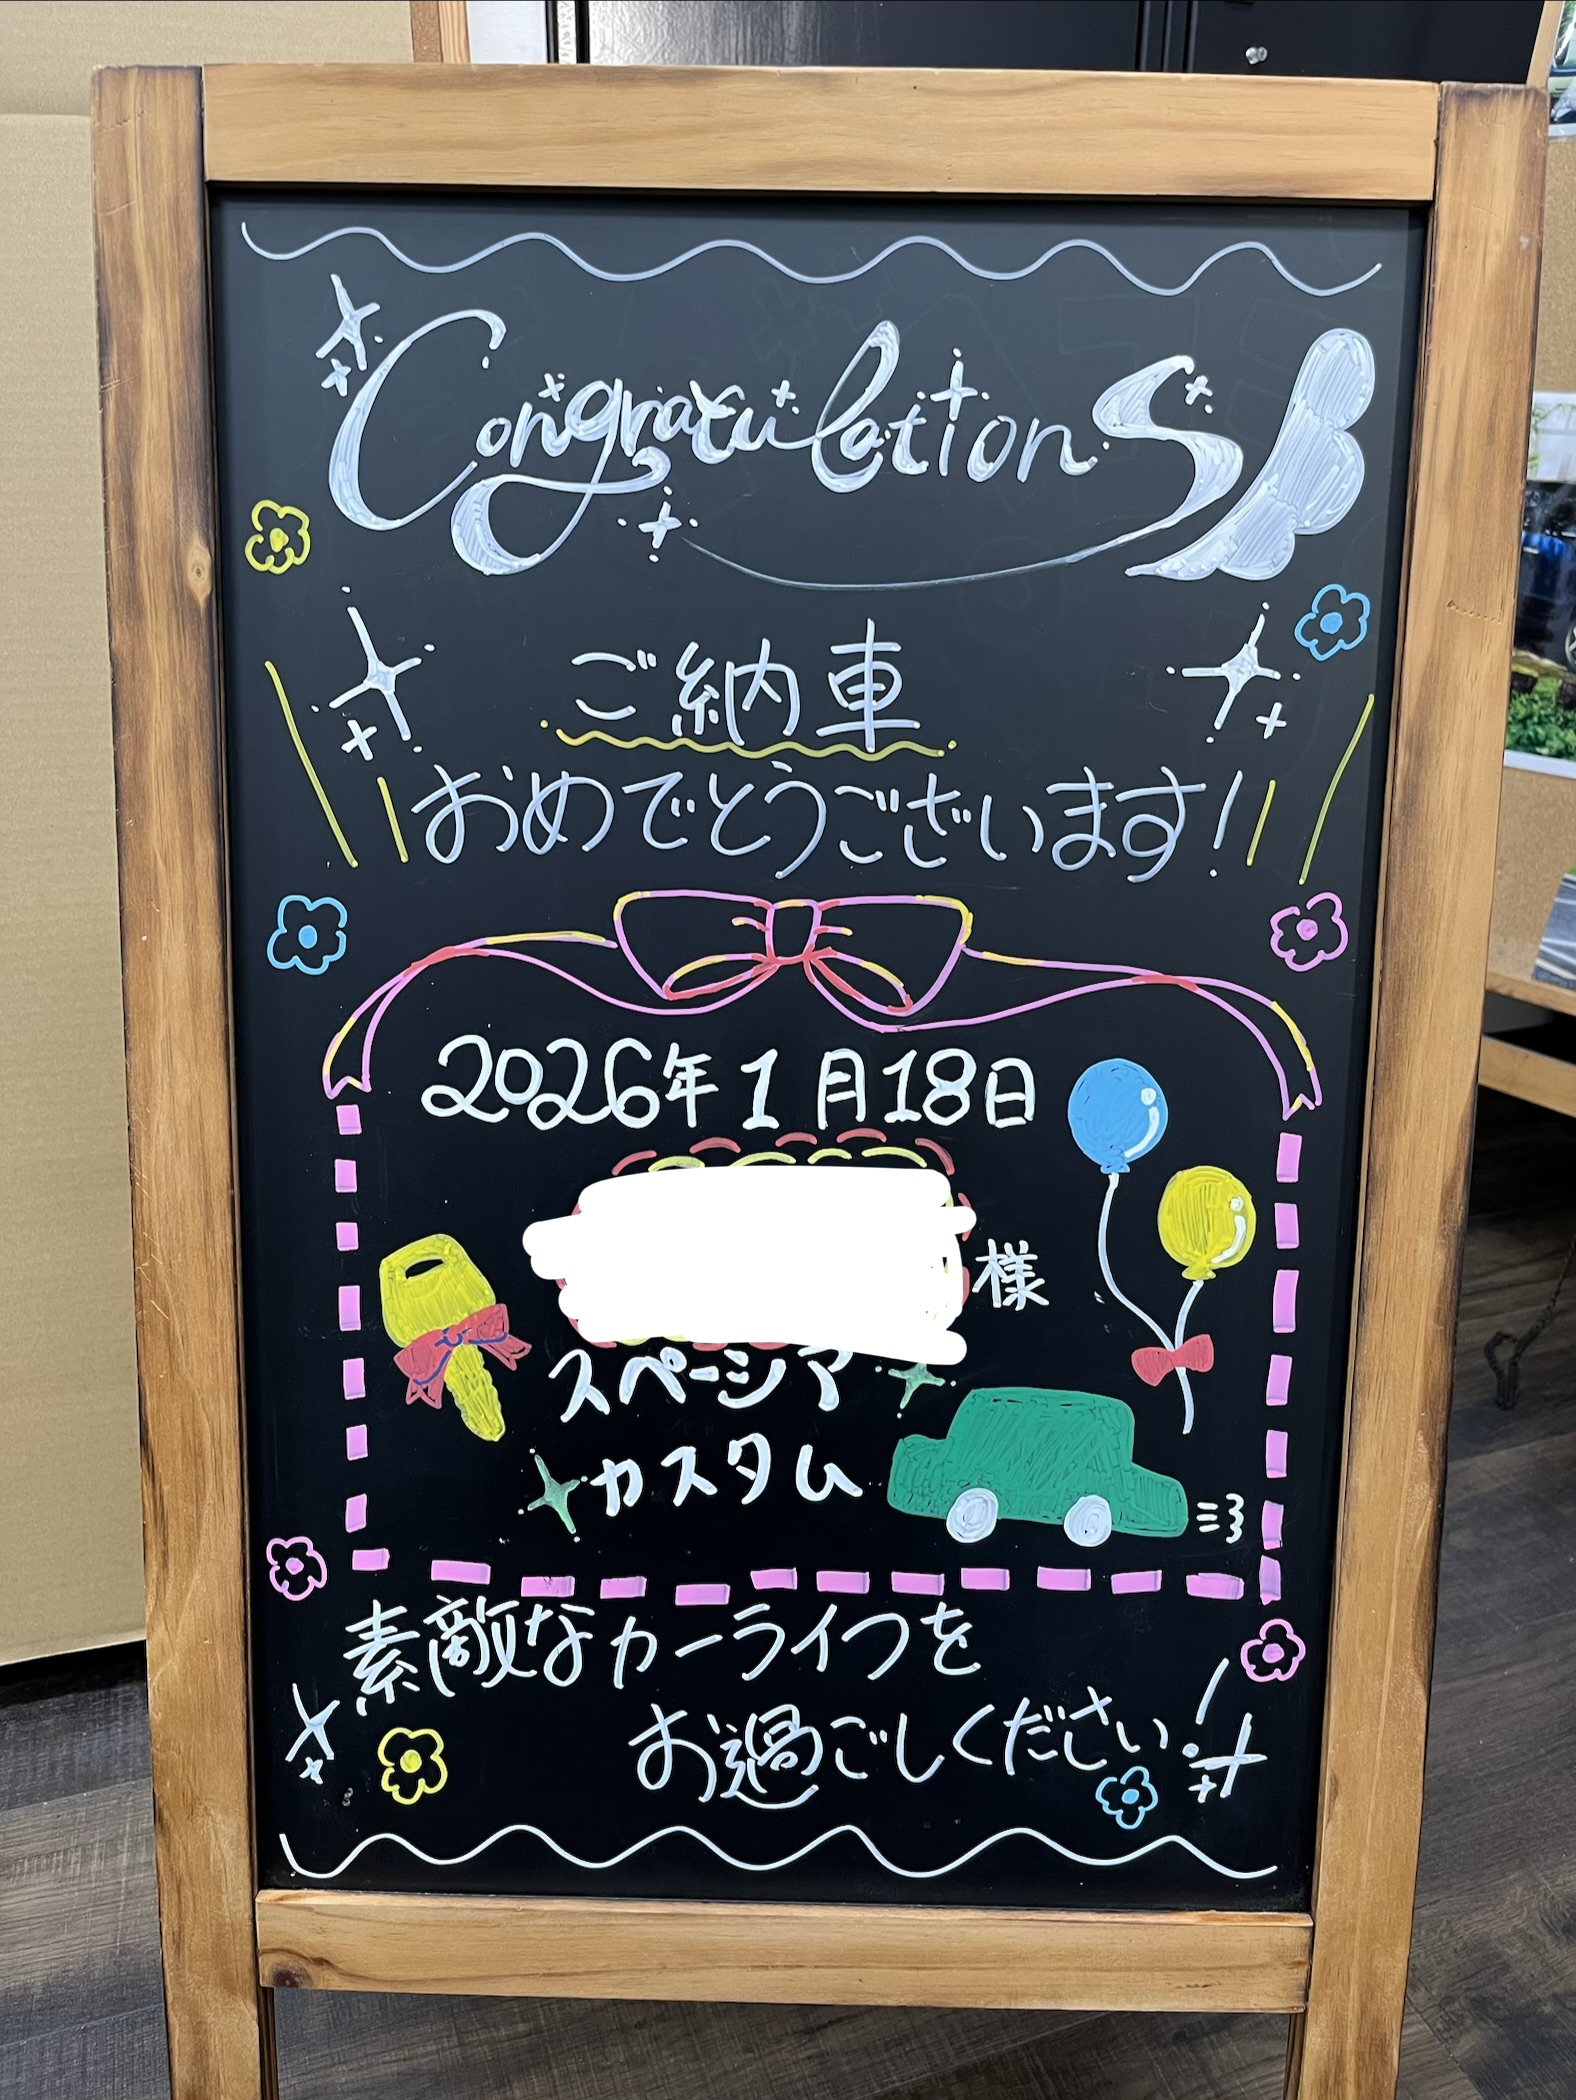 Congratulations
ご納車
おめでとうございます!
2026年1月18日
様
スペーシア
カスタム
素敵なカーライフを
お過ごしください!